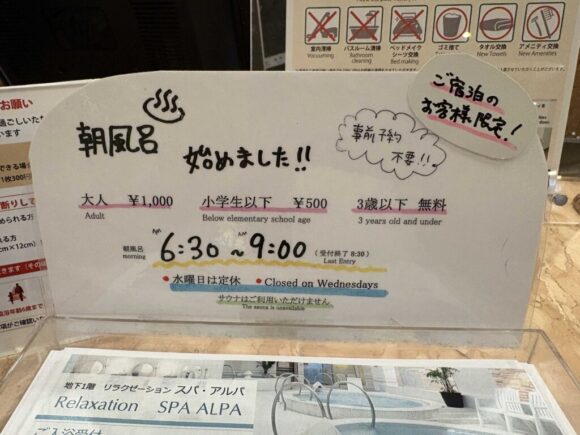 室内清掃
Vacuuming
バスルーム清掃
Bathroom cleaning
ベッドメイク
シーツ交換
Bed making
ゴミ捨て
タオル交換
New Towels
アメニティ交換
New Amenities
ご宿泊の
お客様限定!
朝風呂
始めました!!
事前予約
不要!!
大人 ¥1,000
Adult
小学生以下 ¥500
Below elementary school age
3歳以下 無料
3 years old and under
朝風呂
morning
AM
6:30~
AM
9:00
(受付終了 8:30)
Last Entry
●水曜日は定休 ●Closed on Wednesdays
サウナはご利用いただけません
The sauna is unavailable
お願い
地下1階 リラクゼーション スパ・アルパ
Relaxation SPA ALPA
ご入浴受付